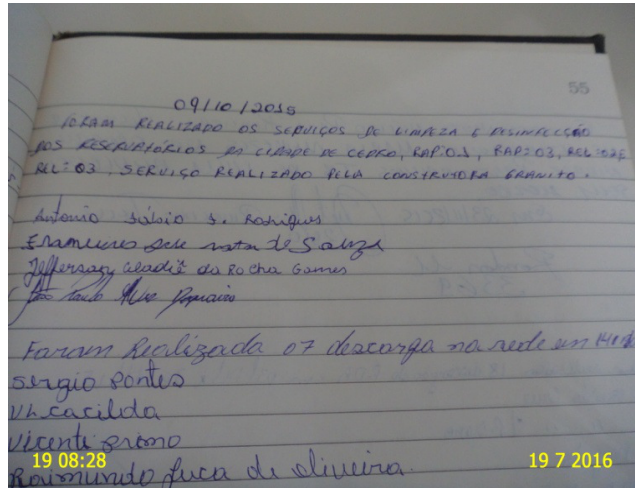 55
09/10/2015
FORAM REALIZADO OS SERVIÇOS DE LIMPEZA E DESINFECÇÃO
DOS RESERVATÓRIOS DA CIDADE DE CEDRO, RAP:01, RAP:03, REL:02E
REL:03. SERVIÇO REALIZADO PELA CONSTRUTORA GRANITO.
Antonio Sábio S. Rodrigues
de Souza
Jefferson da Rocha Gomes
João Paulo
Foram Realizada 07 descarga na rede em
sergio pontes
cacilda
vicente primo
19 08:28 19 7 2016
Raimundo Luca de oliveira.